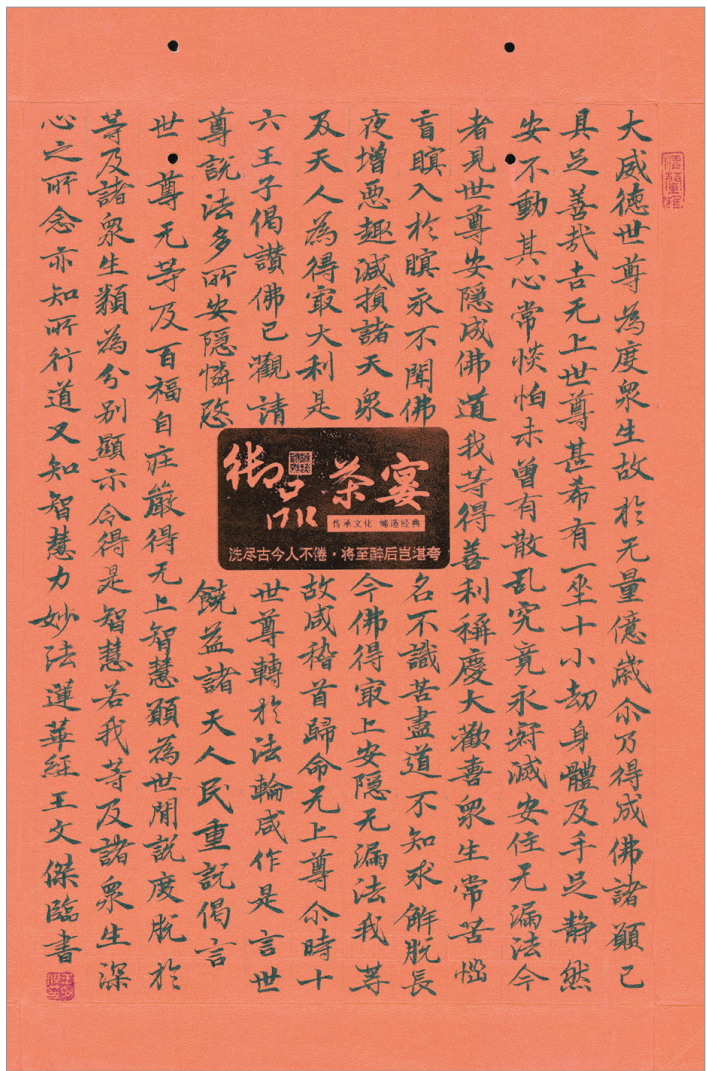 大威德世尊為度眾生故於无量億歲尒乃得成佛諸願已
具足善哉吉无上世尊甚希有一坐十小劫身體及手足靜然
安不動其心常惔怕未曾有散乱究竟永寂滅安住无漏法今
者見世尊安隱成佛道我等得善利稱慶大歡喜眾生常苦惱
盲瞑入於瞑永不聞佛名不識苦盡道不知求解脫長
夜增惡趣減損諸天眾今佛得最上安隱无漏法我等
及天人為得最大利是故咸稽首歸命无上尊尒時十
六王子偈讚佛已觀請世尊轉於法輪咸作是言世
尊說法多所安隱憐愍饒益諸天人民重說偈言
世尊无等及百福自莊嚴得无上智慧願為世間說度脫於
等及諸眾生類為分別顯示令得是智慧若我等及諸眾生深
心之所念亦知所行道又知智慧力妙法蓮華經王文傑臨書
御品茶宴
传承文化 缔造经典
洗尽古今人不倦·将至醉后岂堪夸